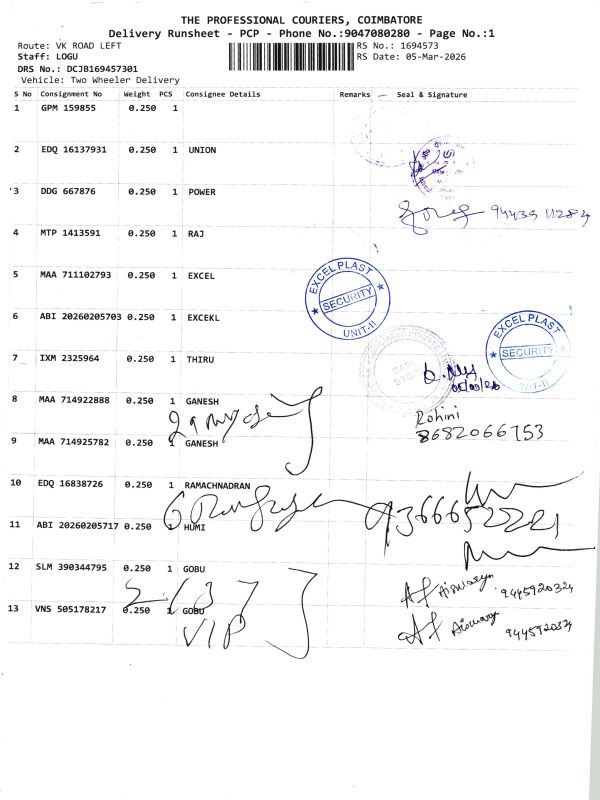 THE PROFESSIONAL COURIERS, COIMBATORE
Delivery Runsheet - PCP - Phone No.:9047080280 - Page No.:1
Route: VK ROAD LEFT
RS No.: 1694573
Staff: LOGU
RS Date: 05-Mar-2026
DRS No.: DCJB169457301
Vehicle: Two Wheeler Delivery
S No Consignment No Weight PCS Consignee Details Remarks Seal & Signature
1 GPM 159855 0.250 1
2 EDQ 16137931 0.250 1 UNION
3 DDG 667876 0.250 1 POWER
4 MTP 1413591 0.250 1 RAJ
5 MAA 711102793 0.250 1 EXCEL
EXCEL PLAST
SECURITY
UNIT-II
6 ABI 20260205703 0.250 1 EXCEKL
EXCEL PLAST
SECURITY
UNIT-II
7 IXM 2325964 0.250 1 THIRU
8 MAA 714922888 0.250 1 GANESH
Rohini
8682066753
9 MAA 714925782 0.250 1 GANESH
10 EDQ 16838726 0.250 1 RAMACHNADRAN
11 ABI 20260205717 0.250 1 HUMI
12 SLM 390344795 0.250 1 GOBU
9445920324
13 VNS 505178217 0.250 1 GOBU
VIP
9445920324